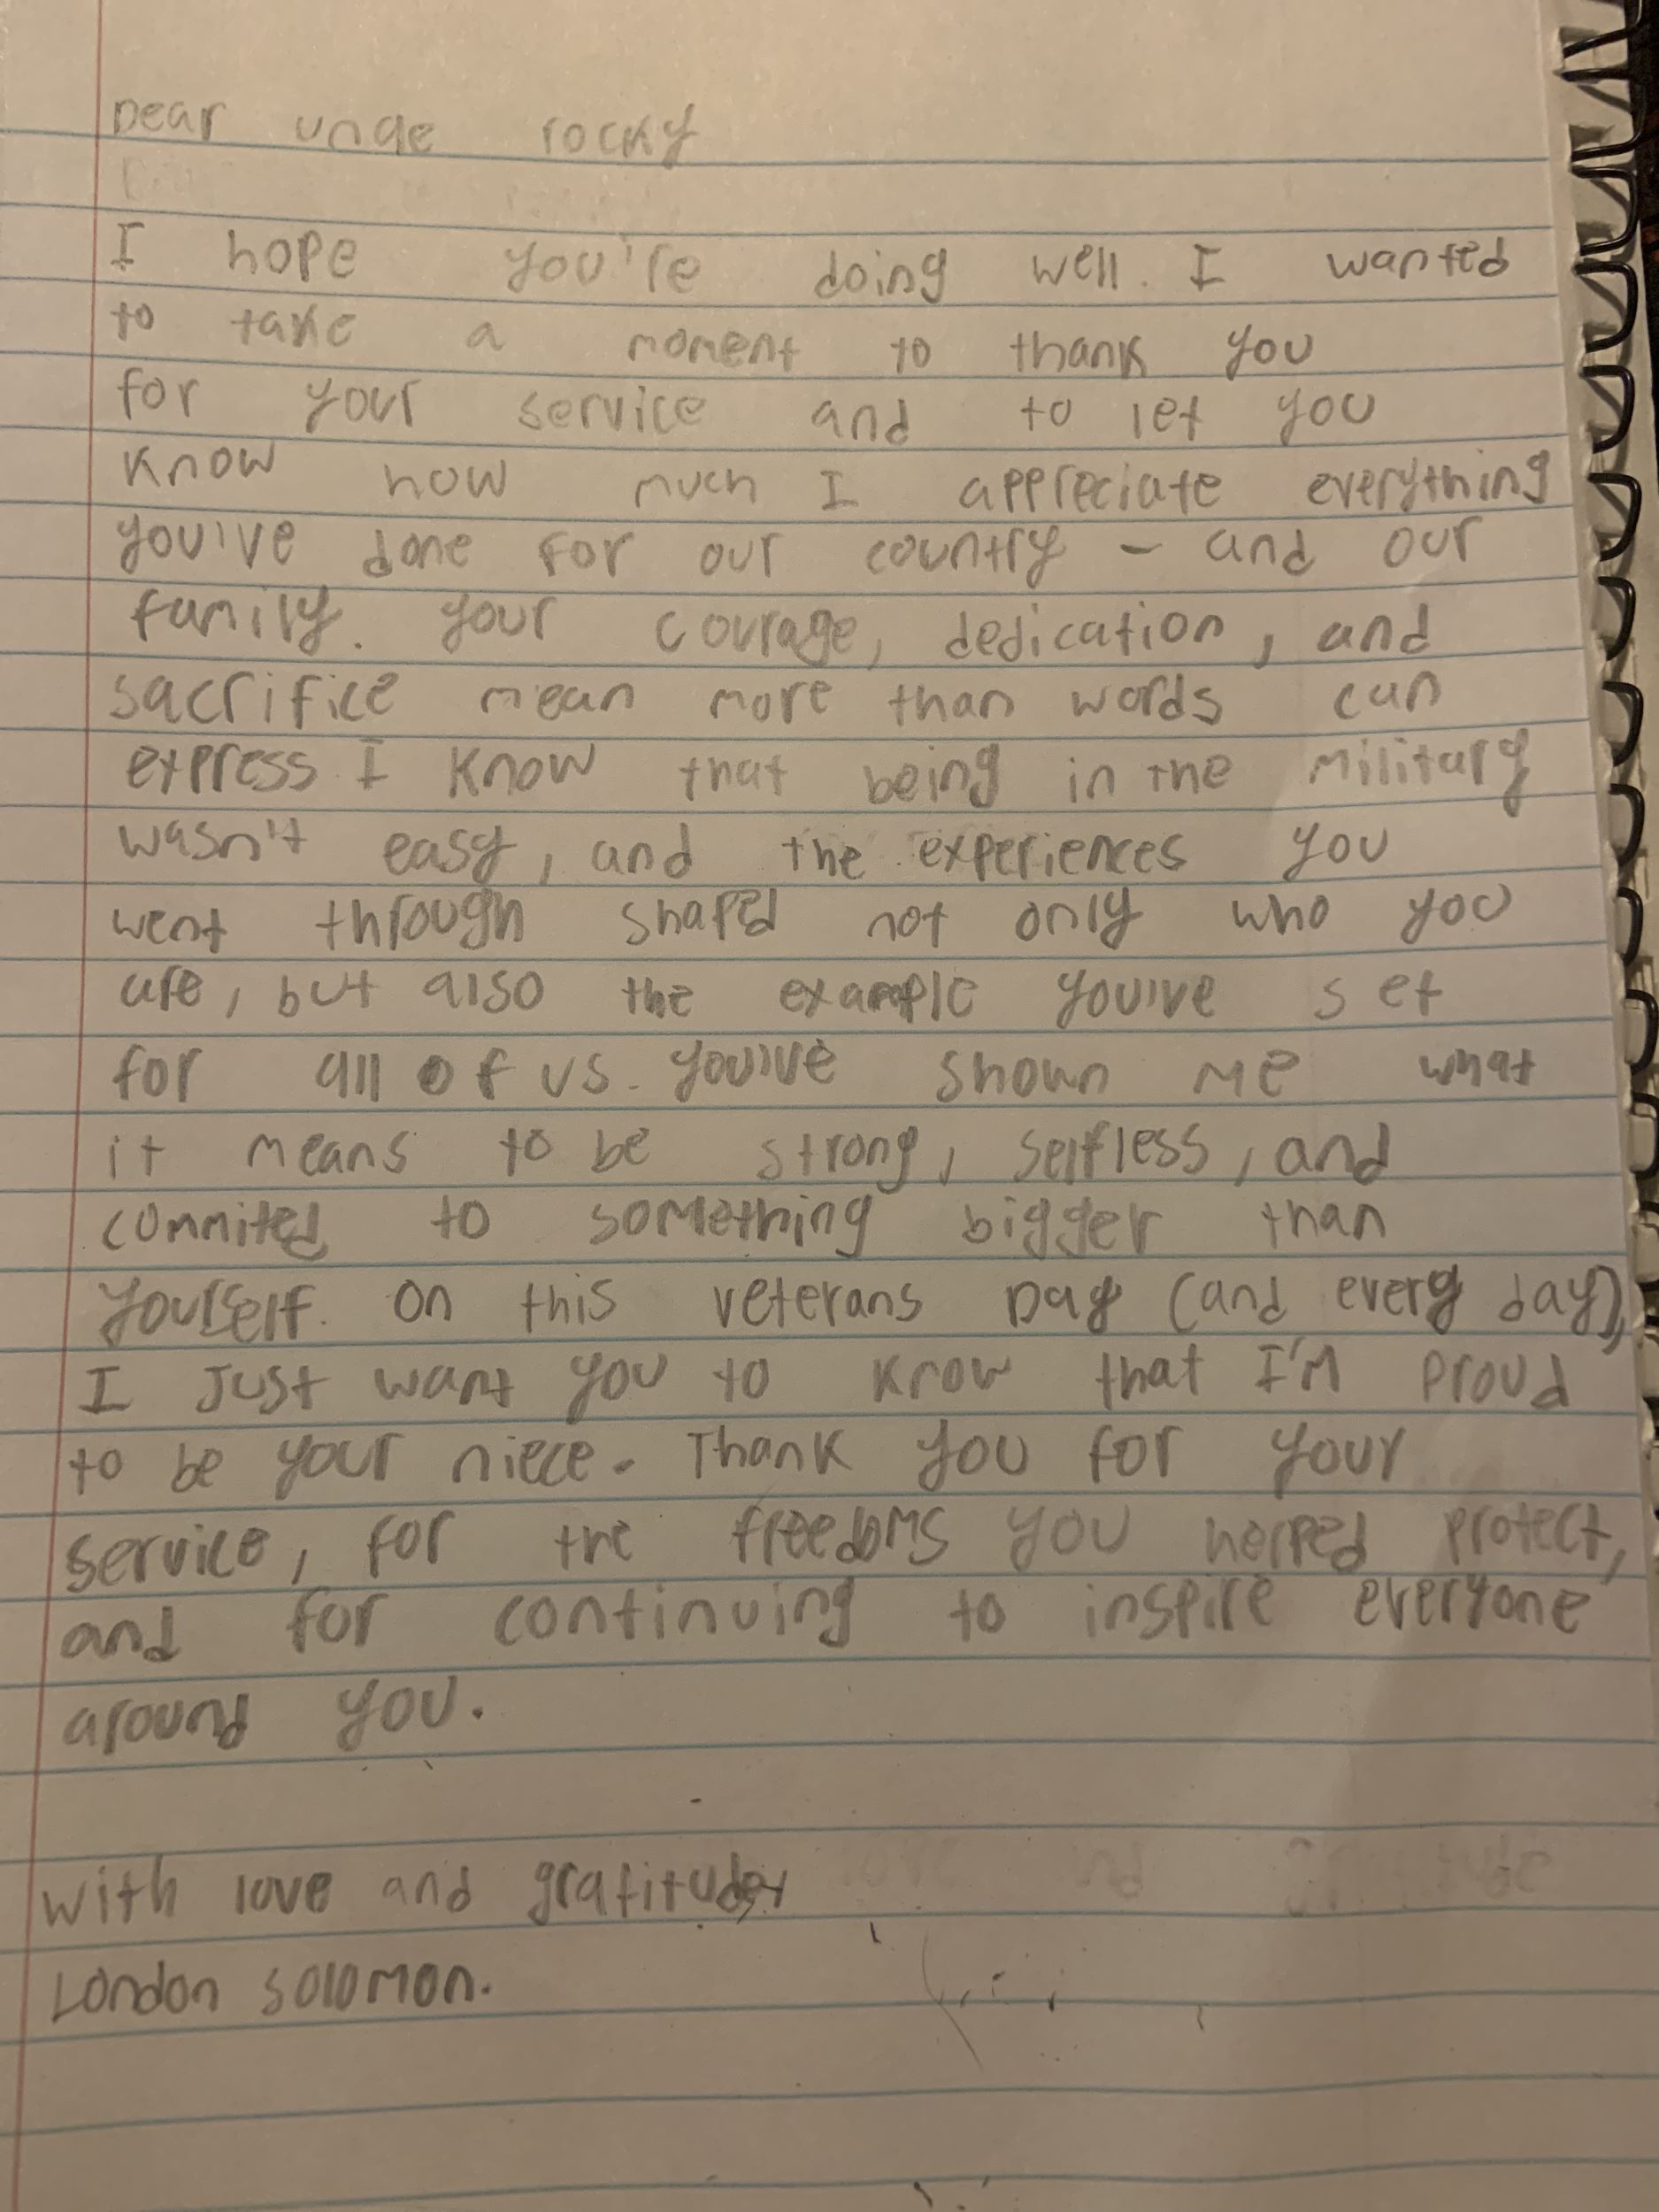 Dear uncle rocky
I hope you're doing well. I wanted
to take a moment to thank you
for your service and to let you
know how much I appreciate everything
you've done for our country - and our
family. your courage, dedication, and
sacrifice mean more than words can
express I know that being in the military
wasn't easy, and the experiences you
went through shaped not only who you
are, but also the example you've set
for all of us. you've shown me what
it means to be strong, selfless, and
commited to something bigger than
yourself. on this veterans Day (and every day),
I Just want you to know that I'm proud
to be your niece. Thank you for your
service, for the freedoms you helped protect,
and for continuing to inspire everyone
around you.
with love and gratitude,
London solomon.